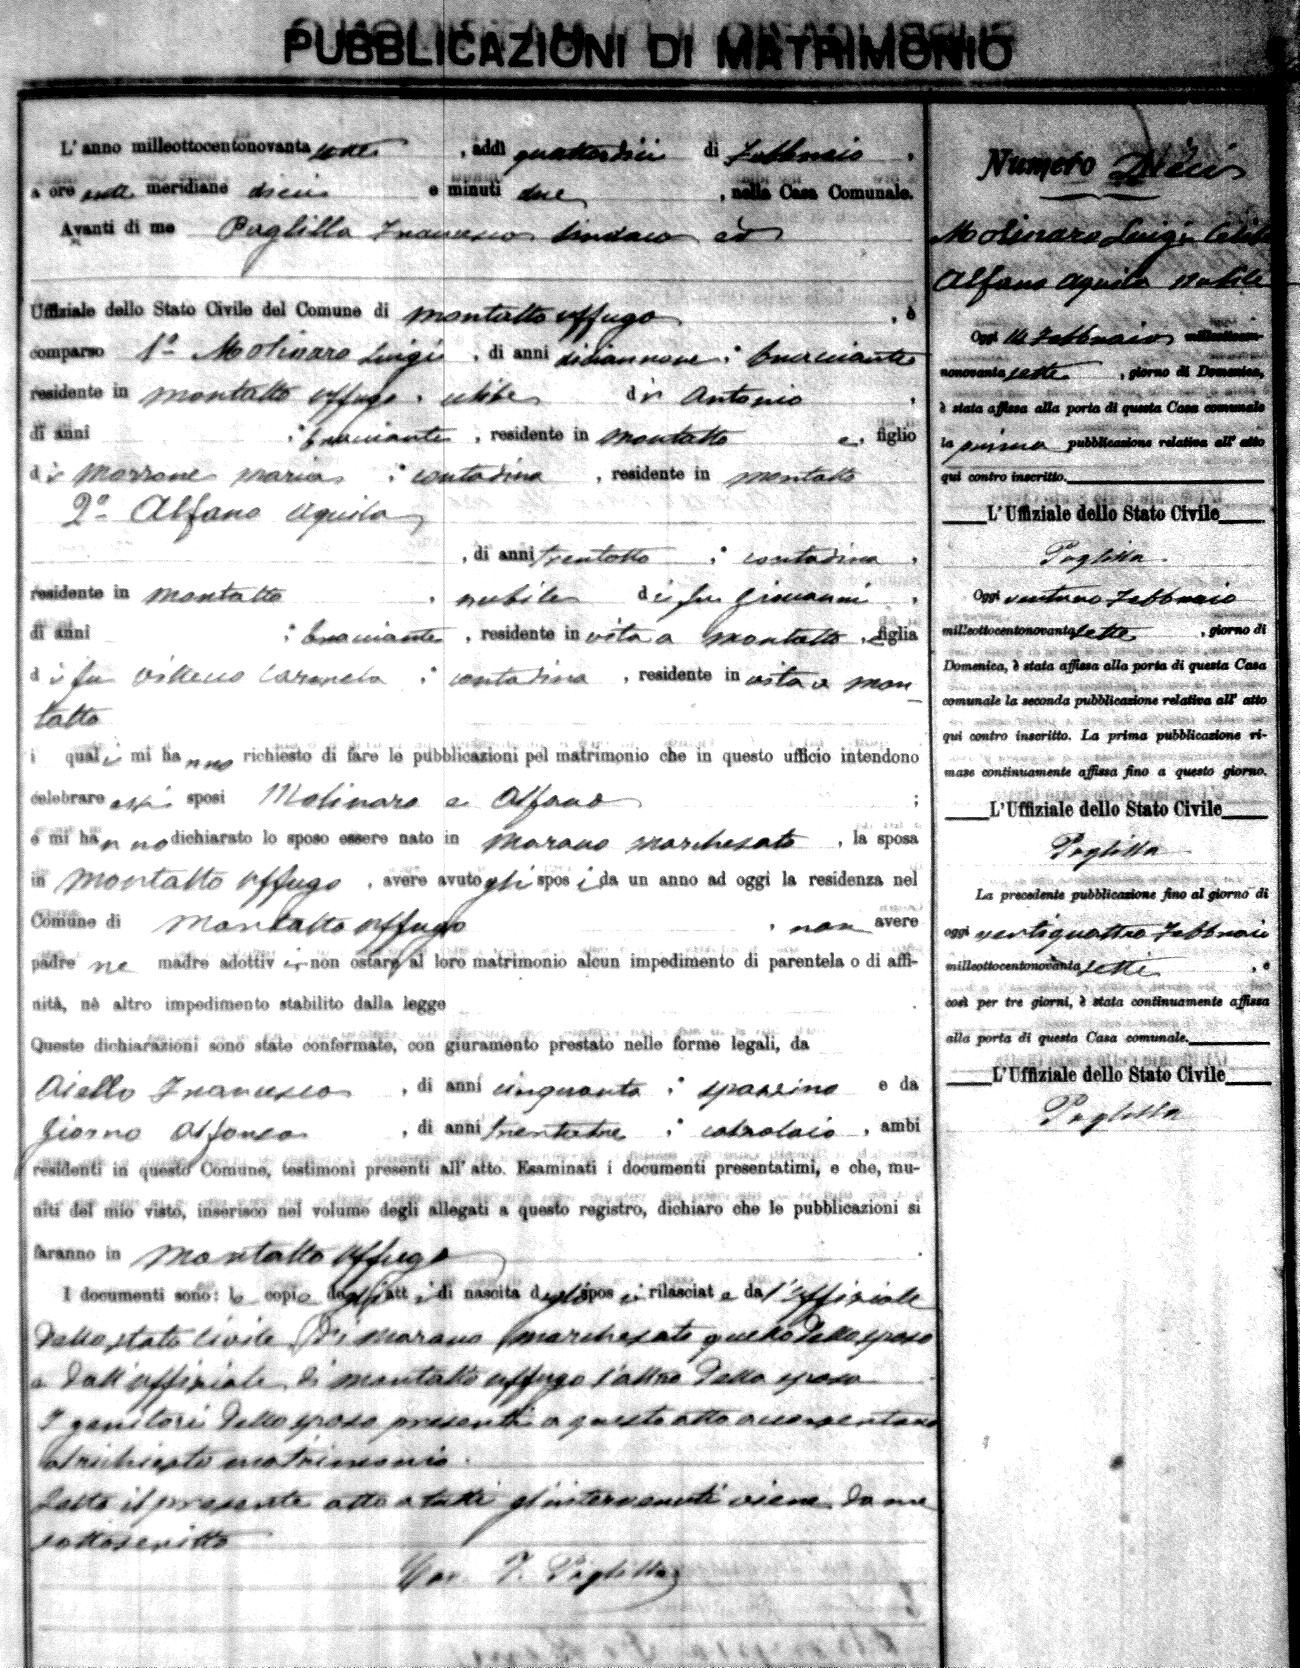 PUBBLICAZIONI DI MATRIMONIO
L'anno milleottocentonovanta sette, addì quattordici di Febbraio,
a ore ante meridiane dieci e minuti due, nella Casa Comunale.
Avanti di me Paglilla Francesco Sindaco ed
Uffiziale dello Stato Civile del Comune di Montalto Uffugo, è
comparso 1º Molinaro Luigi, di anni diciannove; bracciante
residente in Montalto Uffugo, celibe di Antonio,
di anni ; bracciante, residente in Montalto e, figlio
di Morrone Maria; contadina, residente in Montalto
2º Alfano Aquila
, di anni trentotto; contadina,
residente in Montalto, nubile di fu Giovanni,
di anni ; bracciante, residente in vita a Montalto, e figlia
di fu Carmela; contadina, residente in vita a Mon-
talto
i quali mi hanno richiesto di fare le pubblicazioni pel matrimonio che in questo ufficio intendono
celebrare essi sposi Molinaro e Alfano;
e mi hanno dichiarato lo sposo essere nato in Marano Marchesato, la sposa
in Montalto Uffugo, avere avuto gli sposi da un anno ad oggi la residenza nel
Comune di Montalto Uffugo, non avere
padre ne madre adottivi non ostare al loro matrimonio alcun impedimento di parentela o di affi-
nità, nè altro impedimento stabilito dalla legge.
Queste dichiarazioni sono state confermate, con giuramento prestato nelle forme legali, da
Aiello Francesco, di anni cinquanta; spazzino e da
Giorno Alfonso, di anni trentatre; calzolaio, ambi
residenti in questo Comune, testimoni presenti all'atto. Esaminati i documenti presentatimi, e che, mu-
niti del mio visto, inserisco nel volume degli allegati a questo registro, dichiaro che le pubblicazioni si
faranno in Montalto Uffugo.
I documenti sono: le copie degli atti di nascita degli sposi rilasciate da l'uffiziale
dello stato civile di Marano Marchesato quello dello sposo
e dall'uffiziale di Montalto Uffugo l'altro della sposa
I genitori dello sposo presenti a questo atto acconsentono
al richiesto matrimonio.
Letto il presente atto a tutti gl'intervenuti viene da me
sottoscritto
Cav. F. Paglilla
Numero Dieci
Molinaro Luigi Celibe
Alfano Aquila Nubile
Oggi 14 Febbraio milleottocen-
nonovanta sette, giorno di Domenica,
è stata affissa alla porta di questa Casa comunale
la prima pubblicazione relativa all'atto
qui contro inscritto.
L'Uffiziale dello Stato Civile
Paglilla
Oggi ventuno Febbraio
milleottocentonovanta sette, giorno di
Domenica, è stata affissa alla porta di questa Casa
comunale la seconda pubblicazione relativa all'atto
qui contro inscritto. La prima pubblicazione ri-
mase continuamente affissa fino a questo giorno.
L'Uffiziale dello Stato Civile
Paglilla
La precedente pubblicazione fino al giorno di
oggi ventiquattro Febbraio
milleottocentonovanta sette, e
così per tre giorni, è stata continuamente affissa
alla porta di questa Casa comunale.
L'Uffiziale dello Stato Civile
Paglilla